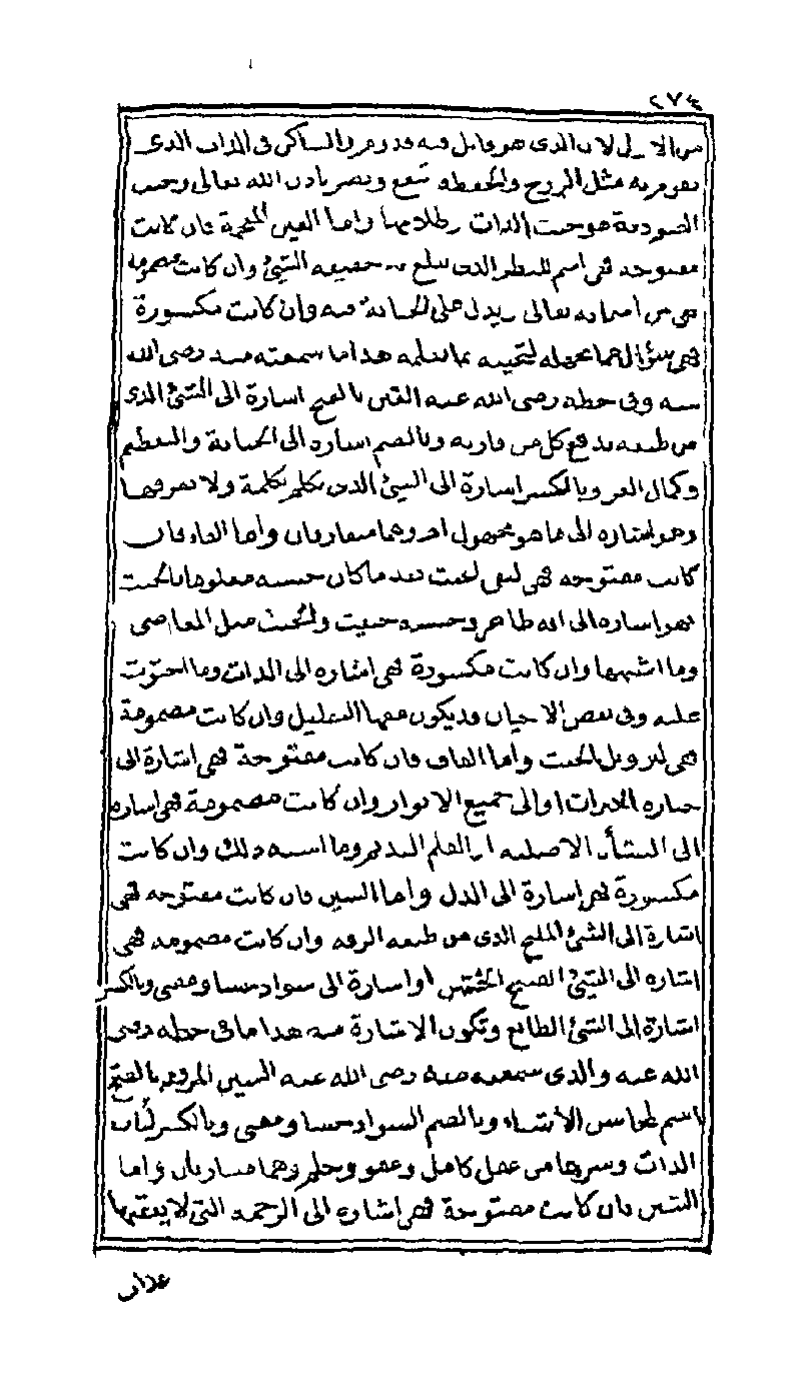 ٢٧٤
من الا لان الذى هو قابل فيه قدومر والساكن فى الذات الذى
تقوم به مثل الروح والحفظه تنفع وتضر باذن الله تعالى وحيث
هو خبث الذات وظلامها واما الغين المعجمة فان كانت
مفتوحه فهى اسم للنظر الذى يبلغ به حقيقه الشئ وان كانت مضمومه
فهى من اسمايه تعالى يدل على الحنانة فيه وان كانت مكسورة
فهى سؤال عما تجهله لتجيبه بما تعلمه هذا ما سمعته منه رضى الله
عنه وفى خطه رضى الله عنه الغين بالفتح اشارة الى الشئ الذى
من طبعه يدفع كل من قاربه وبالضم اشاره الى الحنانة والتعظم
وكمال العز وبالكسر اشارة الى الشئ الذى تكلم بكلمة ولا تعرفها
وهو اشاره الى ما هو مجهول امره وهما متقاربان واما الفاء فان
كانت مفتوحه فهى لنفى الخبث بعد ما كان جنسه معلوما بالخبث
فهو اشاره الى انه طاهر وجنسه خبيث والخبث مثل المعاصى
وما اشبهها وان كانت مكسورة فهى اشاره الى الذات وما احتوت
عليه وفى بعض الاحيان وقد يكون معها التقليل وان كانت مضمومة
فهى لتزويل الخبث واما القاف فان كانت مفتوحة فهى اشارة الى
حيازه الخيرات او الى جميع الانوار وان كانت مضمومة فهى اشاره
الى النشأة الاصليه او العلم القديم وما اشبه ذلك وان كانت
مكسورة فهى اشارة الى الذل واما السين فان كانت مفتوحه فهى
اشارة الى الشئ المليح الذى من طبعه الرقه وان كانت مضمومه فهى
اشاره الى الشئ القبيح الخشين او اشارة الى سواد حسا ومعنى وبالكسر
اشارة الى الشئ الطائع وتكون الاشارة منه هذا ما فى خطه رضى
الله عنه والذى سمعته منه رضى الله عنه السين المرققه بالفتح
اسم لمحاسن الاشياء وبالضم السواد حسا ومعنى وبالكسر لباب
الذات وسرها من عقل كامل وعفو وحلم وهما متقاربان واما
الشين فان كانت مفتوحة فهى اشاره الى الرحمه التى لا يعقبها
عذاب